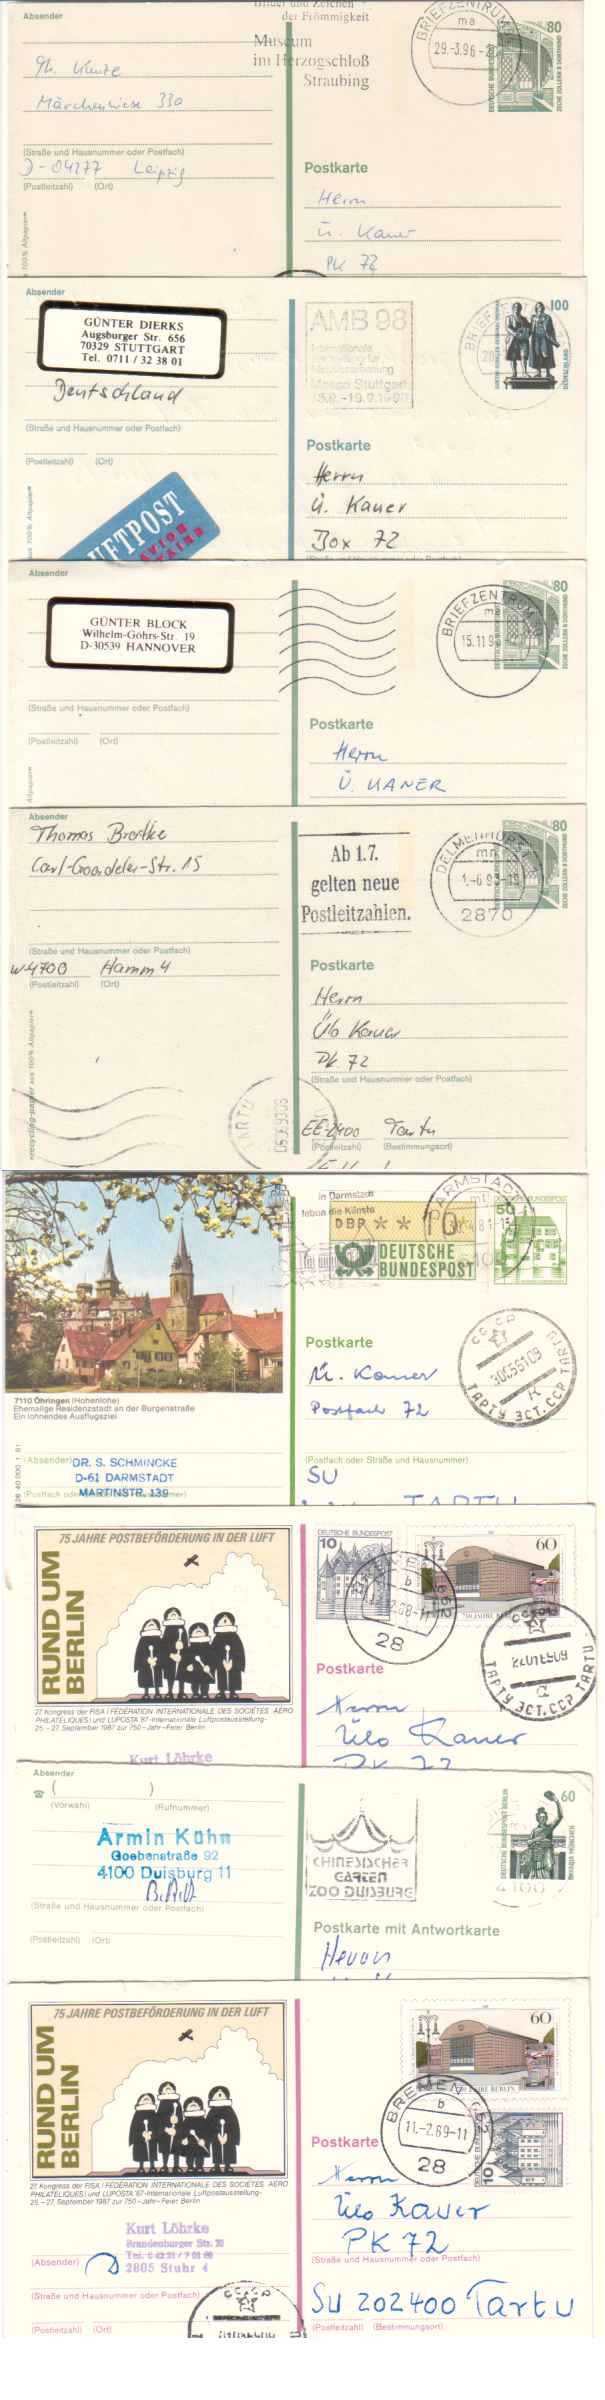 Absender
Bilder und Zeichen
der Frömmigkeit
Museum
im Herzogschloß
Straubing
BRIEFZENTRUM
ma
29.-3.96
80
DEUTSCHE BUNDESPOST
ZECHE ZOLLERN II DORTMUND
Märchenwiese 330
(Straße und Hausnummer oder Postfach)
D-04277 Leipzig
(Postleitzahl) (Ort)
Postkarte
Herrn
Ü. Kauer
PK 72
Absender
GÜNTER DIERKS
Augsburger Str. 656
70329 STUTTGART
Tel. 0711 / 32 38 01
Deutschland
(Straße und Hausnummer oder Postfach)
(Postleitzahl) (Ort)
LUFTPOST
AVION
AMB 98
Internationale
Ausstellung für
Metallbearbeitung
Messe Stuttgart
BRIEFZENTRUM
100
Postkarte
Herrn
Ü. Kauer
Box 72
Absender
GÜNTER BLOCK
Wilhelm-Göhrs-Str. 19
D-30539 HANNOVER
(Straße und Hausnummer oder Postfach)
(Postleitzahl) (Ort)
BRIEFZENTRUM
80
DEUTSCHE BUNDESPOST
ZECHE ZOLLERN II DORTMUND
Postkarte
Herrn
Ü. KAUER
Absender
Thomas Bratke
Carl-Goerdeler-Str. 15
(Straße und Hausnummer oder Postfach)
W-4700 Hamm 4
(Postleitzahl) (Ort)
recycling-papier aus 100% Altpapier
Ab 1.7.
gelten neue
Postleitzahlen.
DELMENHORST
mn
-1.-6.93-19
2870
80
DEUTSCHE BUNDESPOST
ZECHE ZOLLERN II DORTMUND
Postkarte
Herrn
Ülo Kauer
PK. 72
(Straße und Hausnummer oder Postfach)
TARTU
EE-2400 Tartu
(Postleitzahl) (Bestimmungsort)
in Darmstadt
leben die Künste
DBP
10
DEUTSCHE
BUNDESPOST
DARMSTADT
50
DEUTSCHE BUNDESPOST
Postkarte
Ü. Kauer
Postfach 72
СССР
ТАРТУ ЭСТ.ССР TARTU
7110 Öhringen (Hohenlohe)
Ehemalige Residenzstadt an der Burgenstraße
Ein lohnendes Ausflugsziel
(Absender)
DR. S. SCHMINCKE
D-61 DARMSTADT
MARTINSTR. 139
(Postfach oder Straße und Hausnummer)
(Postfach oder Straße und Hausnummer)
SU
TARTU
75 JAHRE POSTBEFÖRDERUNG IN DER LUFT
RUND UM
BERLIN
27. Kongress der FISA ( FÉDÉRATION INTERNATIONALE DES SOCIÉTÉS AÉRO
PHILATÉLIQUES ) und LUPOSTA '87-Internationale Luftpostausstellung-
25.-27. September 1987 zur 750-Jahr-Feier Berlin
Kurt Löhrke
DEUTSCHE BUNDESPOST
10
60
750 JAHRE BERLIN
BREMEN
b
28
СССР
ТАРТУ ЭСТ.ССР TARTU
Postkarte
Herrn
Ülo Kauer
PK 72
Absender
☎ ( )
(Vorwahl) (Rufnummer)
Armin Kühn
Goebenstraße 92
4100 Duisburg 11
B.R.D.
(Straße und Hausnummer oder Postfach)
(Postleitzahl) (Ort)
CHINESISCHER
GARTEN
ZOO DUISBURG
4100
60
DEUTSCHE BUNDESPOST BERLIN
BAVARIA MÜNCHEN
Postkarte mit Antwortkarte
Herrn
75 JAHRE POSTBEFÖRDERUNG IN DER LUFT
RUND UM
BERLIN
27. Kongress der FISA ( FÉDÉRATION INTERNATIONALE DES SOCIÉTÉS AÉRO
PHILATÉLIQUES ) und LUPOSTA '87-Internationale Luftpostausstellung-
25.-27. September 1987 zur 750-Jahr-Feier Berlin
60
750 JAHRE BERLIN
BREMEN
b
11.-2.89-11
28
10
Postkarte
Herrn
Ülo Kauer
PK 72
Kurt Löhrke
Brandenburger Str.
2805 Stuhr 4
(Absender)
(Straße und Hausnummer oder Postfach)
(Straße und Hausnummer oder Postfach)
СССР
SU 202400 Tartu
(Postleitzahl) (Ort)
(Postleitzahl) (Bestimmungsort)